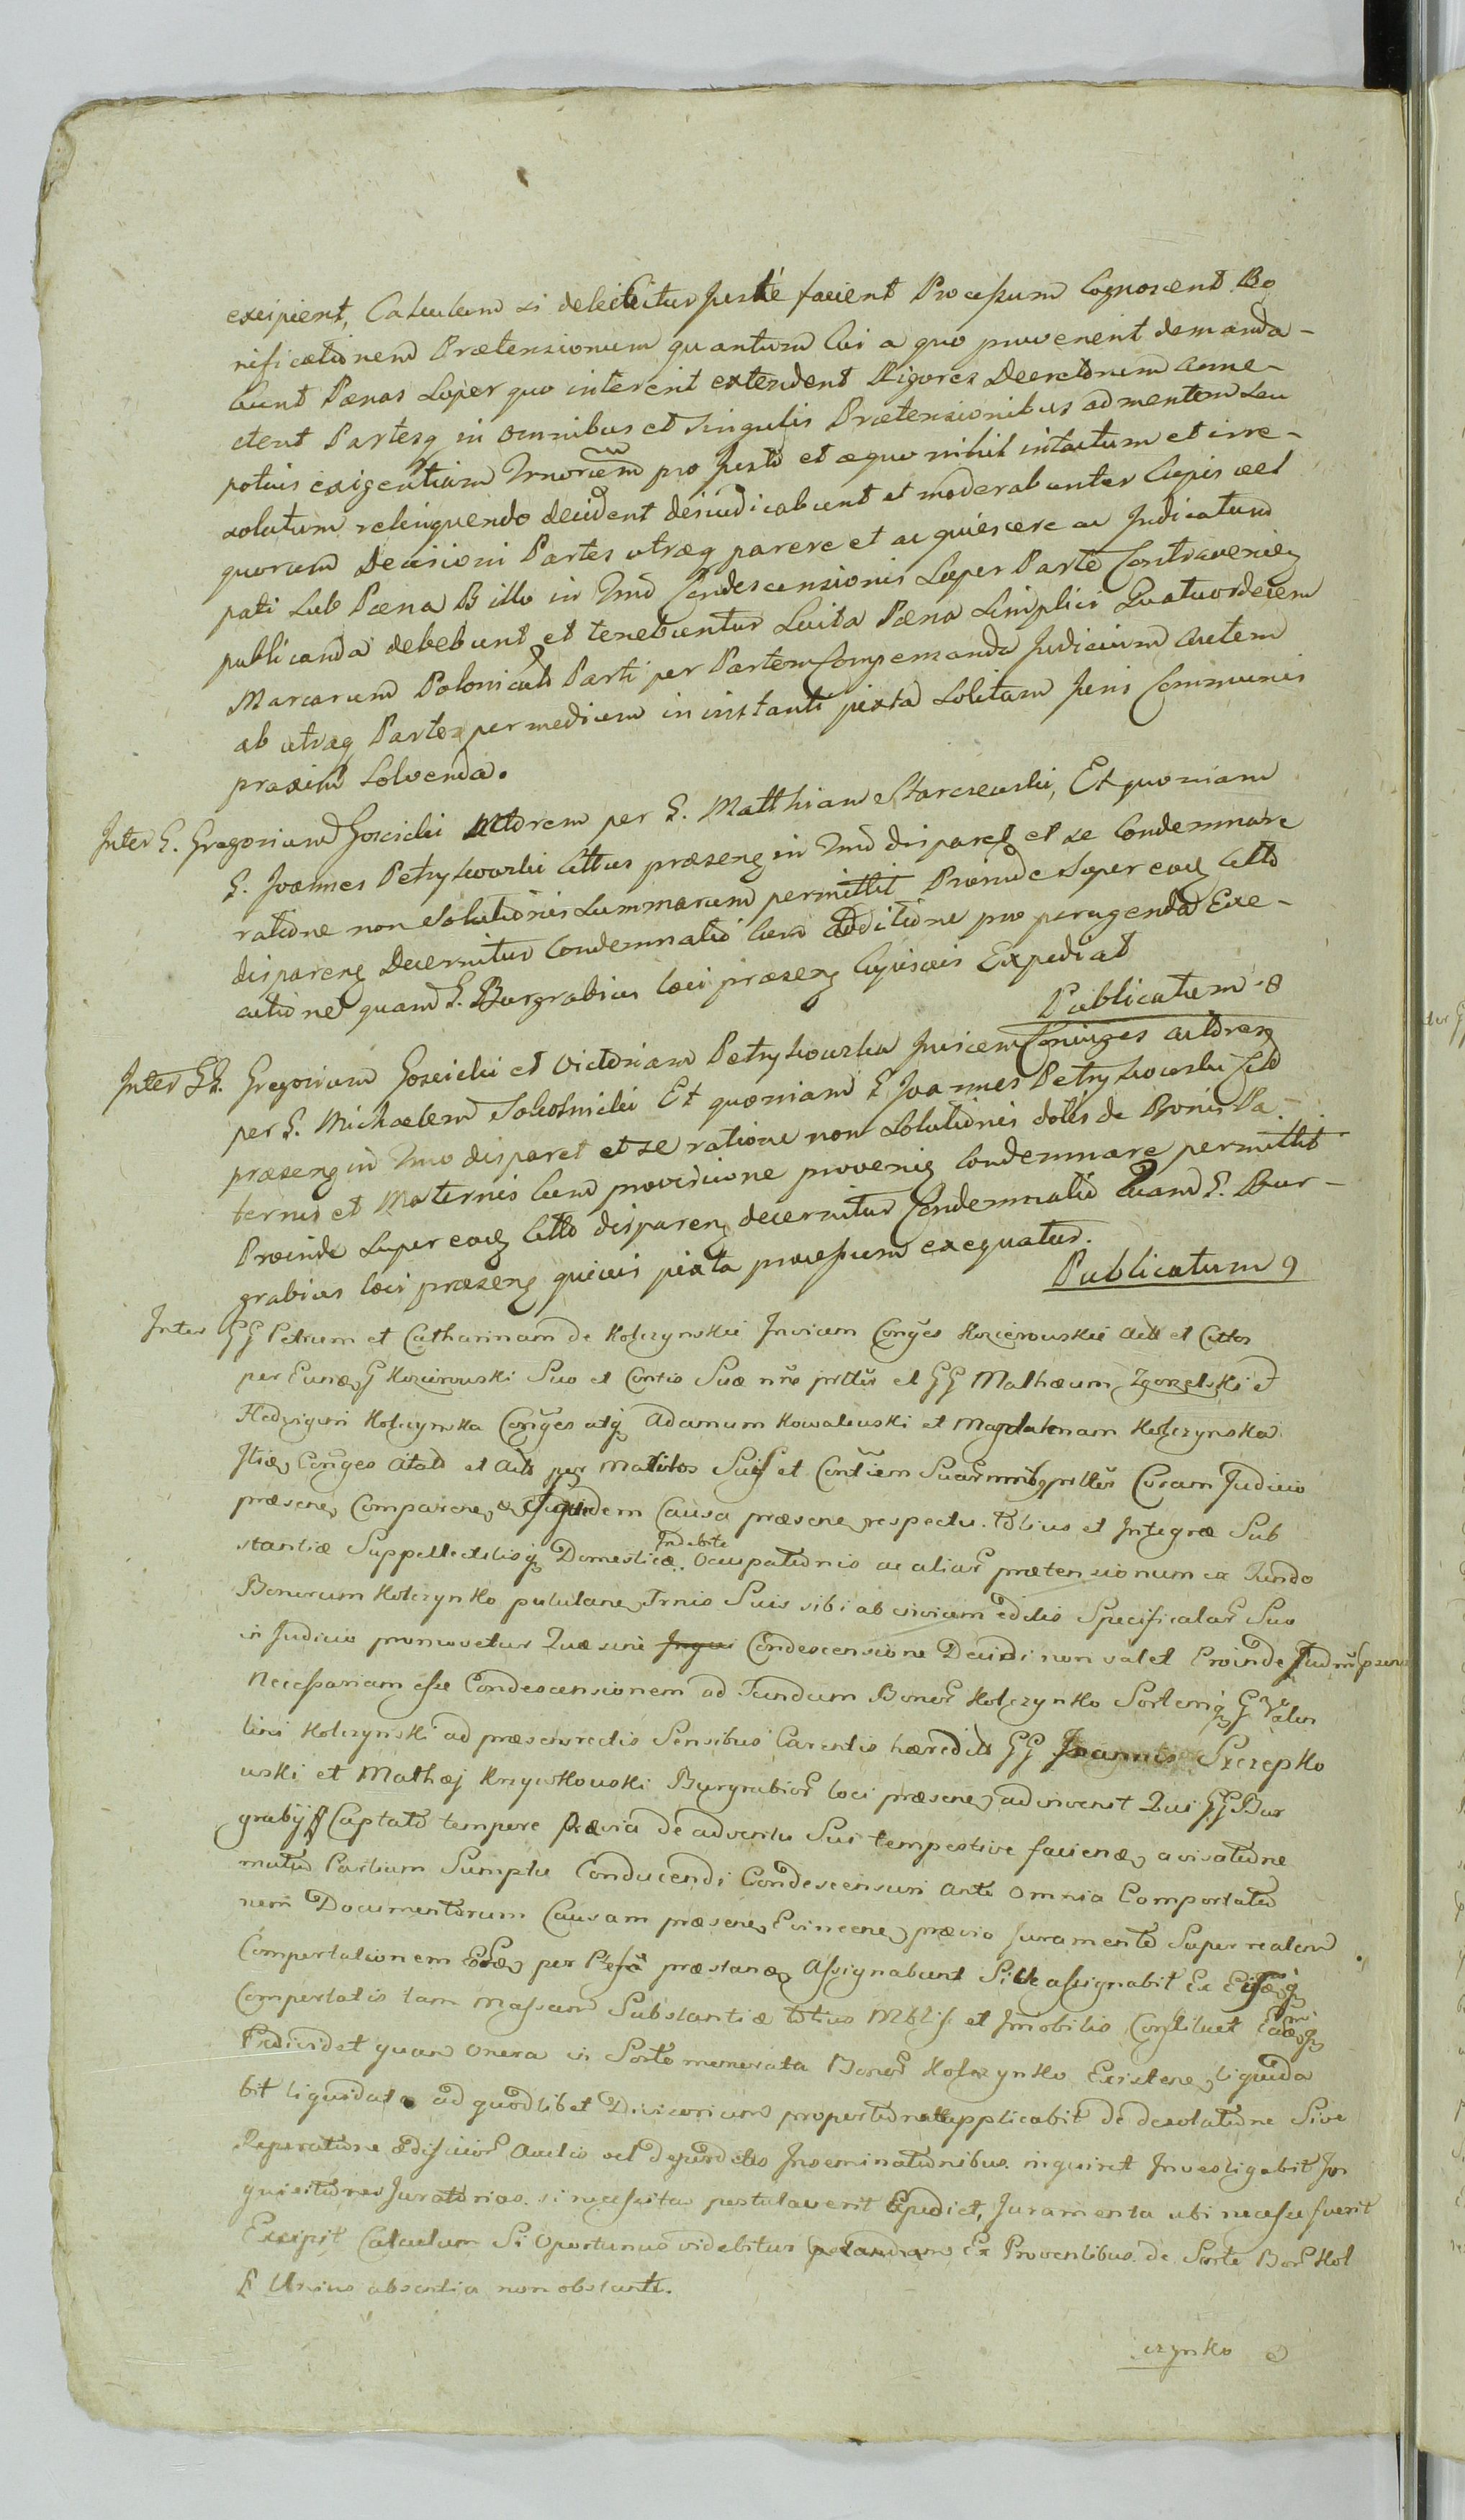 excipient, Calculum si delectetur juste facient Processum Cognoscent Bo
nificationem Prætensionum quantum Cui a quo provenerit demanda-
bunt Pænas Super quo intererit extendent Rigores Decretorum anne-
ctent Partesq in omnibus et Singulis Prætensionibus ad mentem seu
potius exigentiam Tmnorem pro justo et æquo nihil intactum et irre-
solutum relinquendo decident dejudicabunt et moderabuntur Cujus vel
quorum Decisioni Partes utræq parere et acquiescere ac Judicatum
pati Sub Pæna B illo in Tmo Condescensionis Super Parte Contravenieñ
publicanda debebunt et tenebuntur Luita Pæna Simplici Quatuordecem
Marcarum Polonicali Parti per Partem Compensanda Judicium autem
ab utraq Parte per medium in instanti juxta Solitam Juris Communis
praxim Solvenda.
Inter G. Gregorium Goscicki Actorem per G. Matthiam Starczewski, Et quoniam
G. Joannes Petrykowski Cittus præseng in Tmo disparet et se Condemnare
ratione non Solutionis Summarum permittit Proinde Super eaq Citto
dispareng Decernitur Condemnatio Cum Additione pro peragenda Exe-
cutione quam G. Burgrabius loci præseng Cujusvis Expediat
Publicatum 8
Inter GG. Gregorium Goscicki et Victoriam Petrykowska Invicem Conjuges actoreg
per G. Michaelem Sokolnicki Et quoniam G Joannes Petrykowski Citto
præseng in Tmo disparet et se ratione non Solutionis dotis de Bonis Pa-
ternis et Maternis Cum provisione provenieg Condemnare permittit
Proinde Super eaq Citto dispareng decernitur Condemnatio Quam G. Bur-
grabius loci præseng quivis juxta processum exequatur.
Publicatum 9
Inter GG Petrum et Catharinam de Kolczynskie Invicem Conges Kozierowskie Act et Cittos
per Eunæ G Kozierowski Suo et Contis Suæ nre prtter et GG Mathæum Zgorzelski et
Hedvigim Kolczynska Conges atq Adamum Kowalewski et Magdalenam Kolczynska
Itiæ Conges Atats et Acts per Maritos Suos et Contiem Suar nmibg prtter Coram Judicio
præsene Comparene Causa præsene respectu totius et Integræ Sub
stantiæ Suppellectilisq Domesticæ Indebite Occupationis ac aliar prætensionum ex Fundo
Bonorum Kolczynko pululane Trnis Suis sibi ab invicem editis Specificatar Suo
in Judicio promovetur Quæ sine Condescensione Decidi non valet Proinde Judm præsens
Necessariam esse Condescensionem ad Fundum Bonor Kolczynko Sortemq G Valen
tini Kolczynski ad præsens rectis Sensibus Carentis hæredits GG Joannis Szczepko
wski et Mathæj Krzywkowski Burgrabior loci præsene adinvenit Qui GG Bur
grabij Captato tempore prævia de adventu Sui tempestive facienæ avisatione
mutuo Partium Sumptu Conducendi Condescensuri ante omnia Comportatio
nem Documentorum Causam præsene Evincene prævio juramento Super realem
Comportationem Eodæ per præstanæ Assignabunt Sive assignabit Ex
Comportatis tam Massam Substantiæ totius Mblis et Immobilis Constituet
Subdividet quam onera in Sorte memorata Bonor Kolczynko Existene liquida
bit liquidata ad quodlibet Divisorium proportionate applicabit de desolatione Sive
Reparatione ædificior Auctis vel deperditis Inseminationibus inquiret Investigabit In
quisitiones Juratorias si necessitas postulaverit Expediet, Juramenta ubi necesse fuerit
Excipit Calculum Si Oportunus videbitur Ex Proventibus de Sorte Bor Kol
Unius absentia non obstante.
czynko